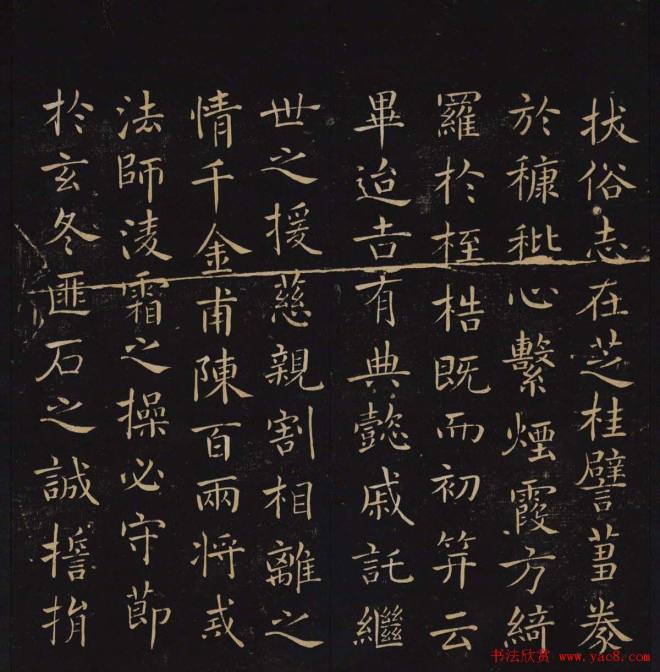 状俗志在芝桂譬蒭豢
於穅秕心繫煙霞方綺
羅於桎梏既而初笄云
畢迨吉有典懿戚託繼
世之援慈親割相離之
情千金甫陳百兩将戒
法師淩霜之操必守節
於玄冬匪石之誠誓捐
书法欣赏 www.yac8.com